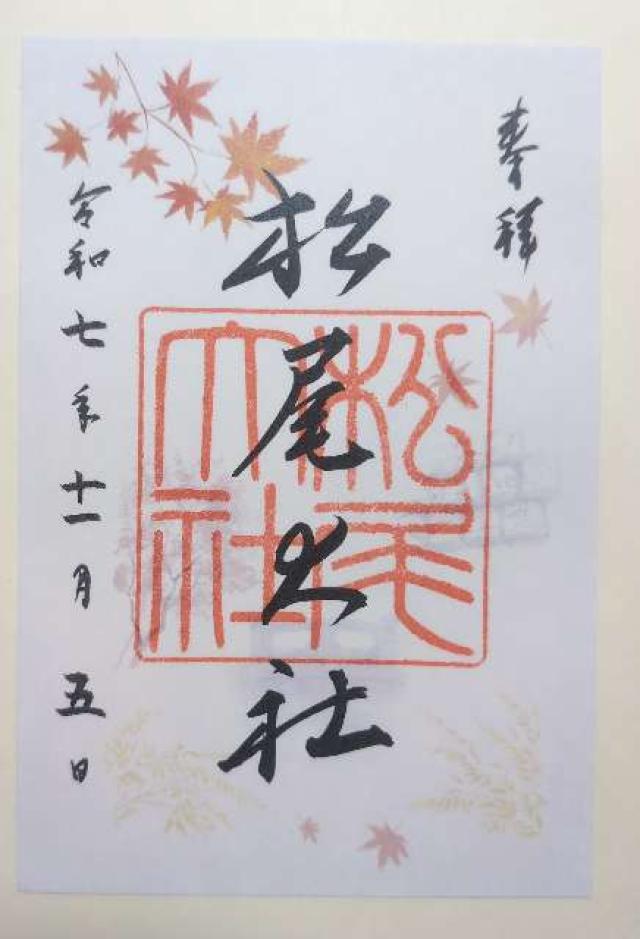 奉拝
松尾大社
松尾大社
令和七年十一月五日